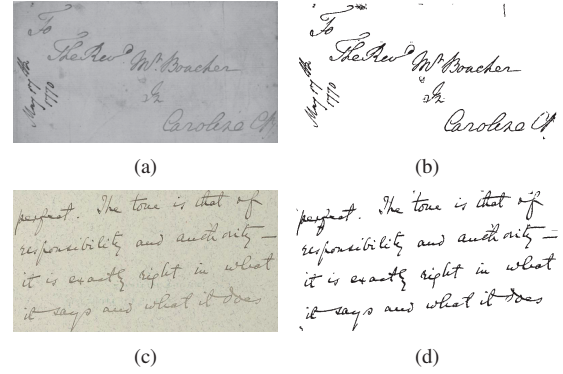 To
The Revd Mr. Boacher
In
Caroline Cy.
May 17th
1770
(a)
To
The Revd Mr. Boacher
In
Caroline Cy.
May 17th
1770
(b)
perfect. The tone is that of
responsibility and authority —
it is exactly right in what
it says and what it does
(c)
perfect. The tone is that of
responsibility and authority —
it is exactly right in what
it says and what it does
(d)